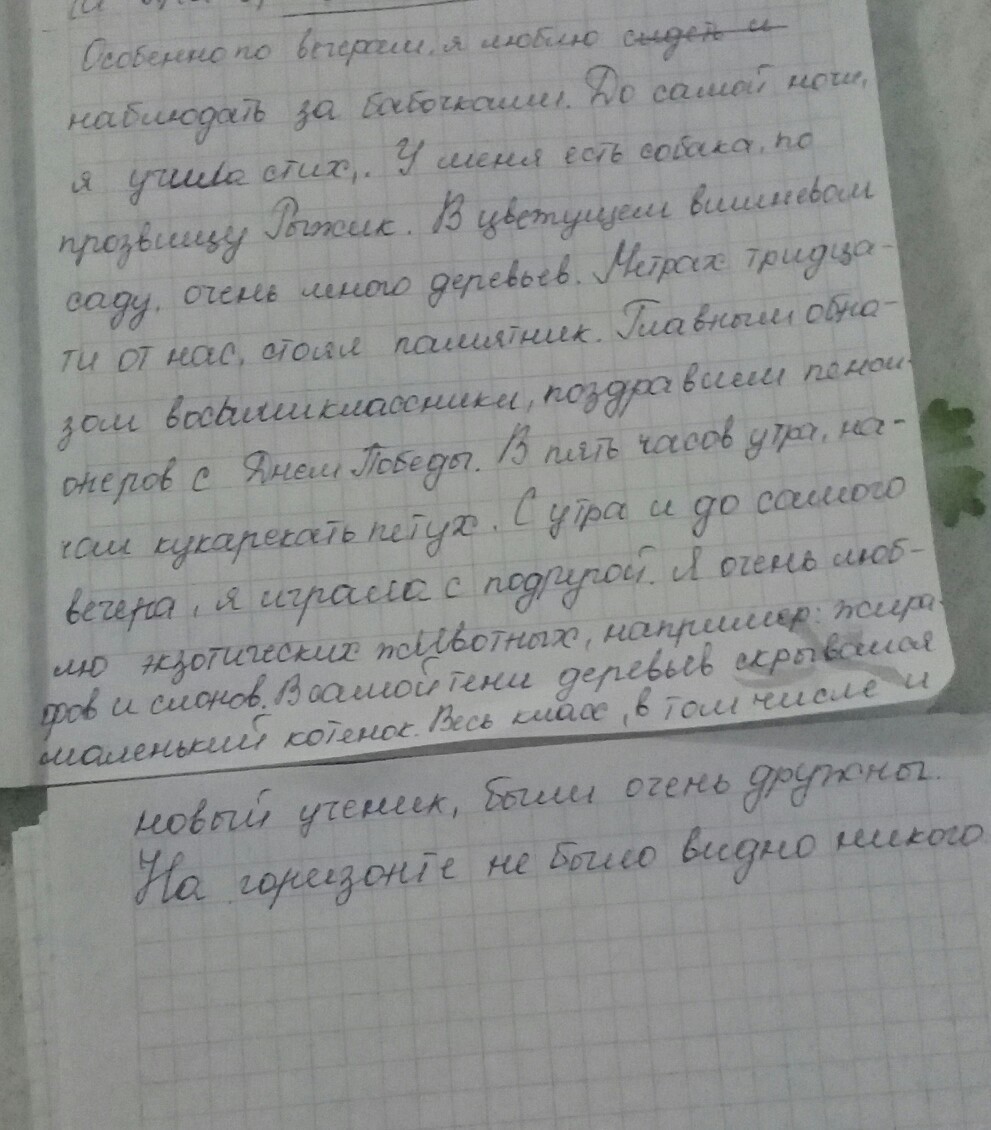 Особенно по вечерам, я люблю сидеть и
наблюдать за бабочками. До самой ночи,
я учила стих,. У меня есть собака, по
прозвищу Рыжик. В цветущем вишневом
саду, очень много деревьев. Метрах тридца-
ти от нас, стоял памятник. Главным обра-
зом восьмиклассники, поздравием пенси-
онеров с Днем Победы. В пять часов утра, на-
чал кукарекать петух. С утра и до самого
вечера, я играла с подругой. Я очень люб-
лю экзотических животных, например: жира-
фов и слонов. В самой тени деревьев скрывался
маленький котенок. Весь класс, в том числе и
новый ученик, были очень дружны.
На горизонте не было видно никого